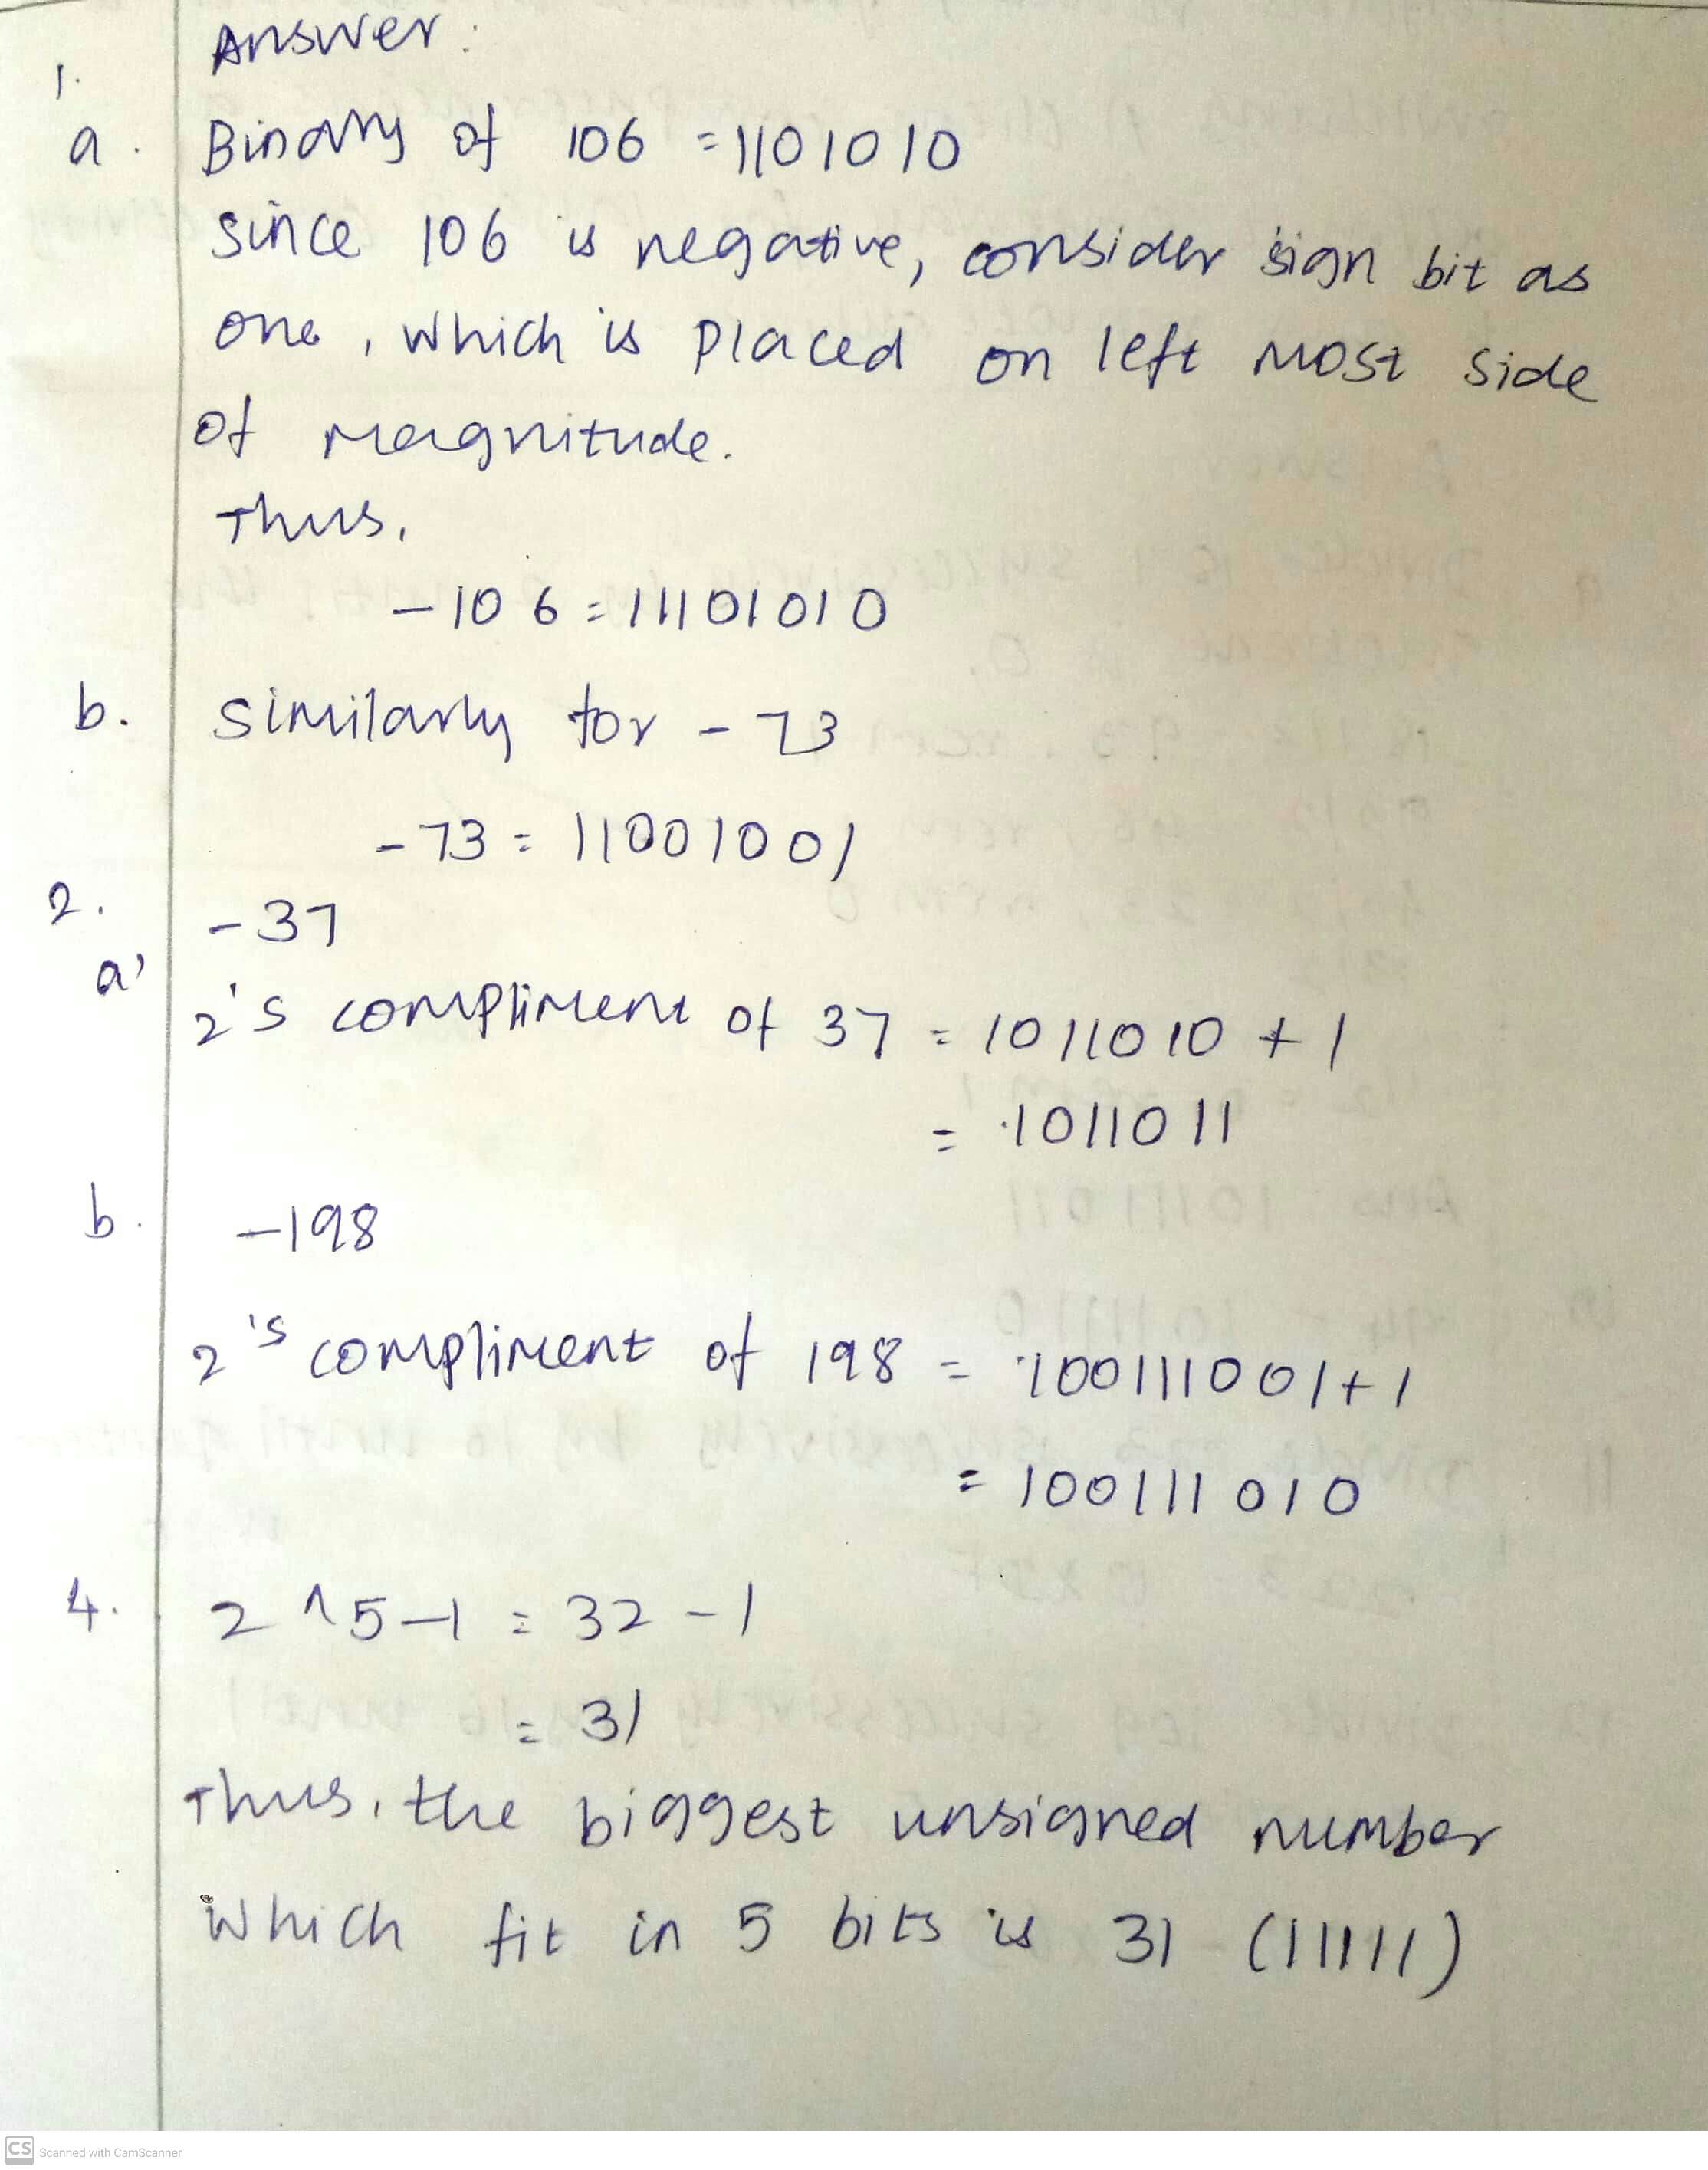 Answer:
1.
a. Binary of 106 = 1101010
since 106 is negative, consider sign bit as
one, which is placed on left most side
of magnitude.
Thus,
-106 = 11101010
b. similarly for -73
-73 = 11001001
2. -37
a)
2's compliment of 37 = 1011010 + 1
= 1011011
b. -198
2's compliment of 198 = 100111001+1
= 100111010
4. 2^5-1 = 32-1
= 31
Thus, the biggest unsigned number
which fit in 5 bits is 31 (11111)
CS Scanned with CamScanner